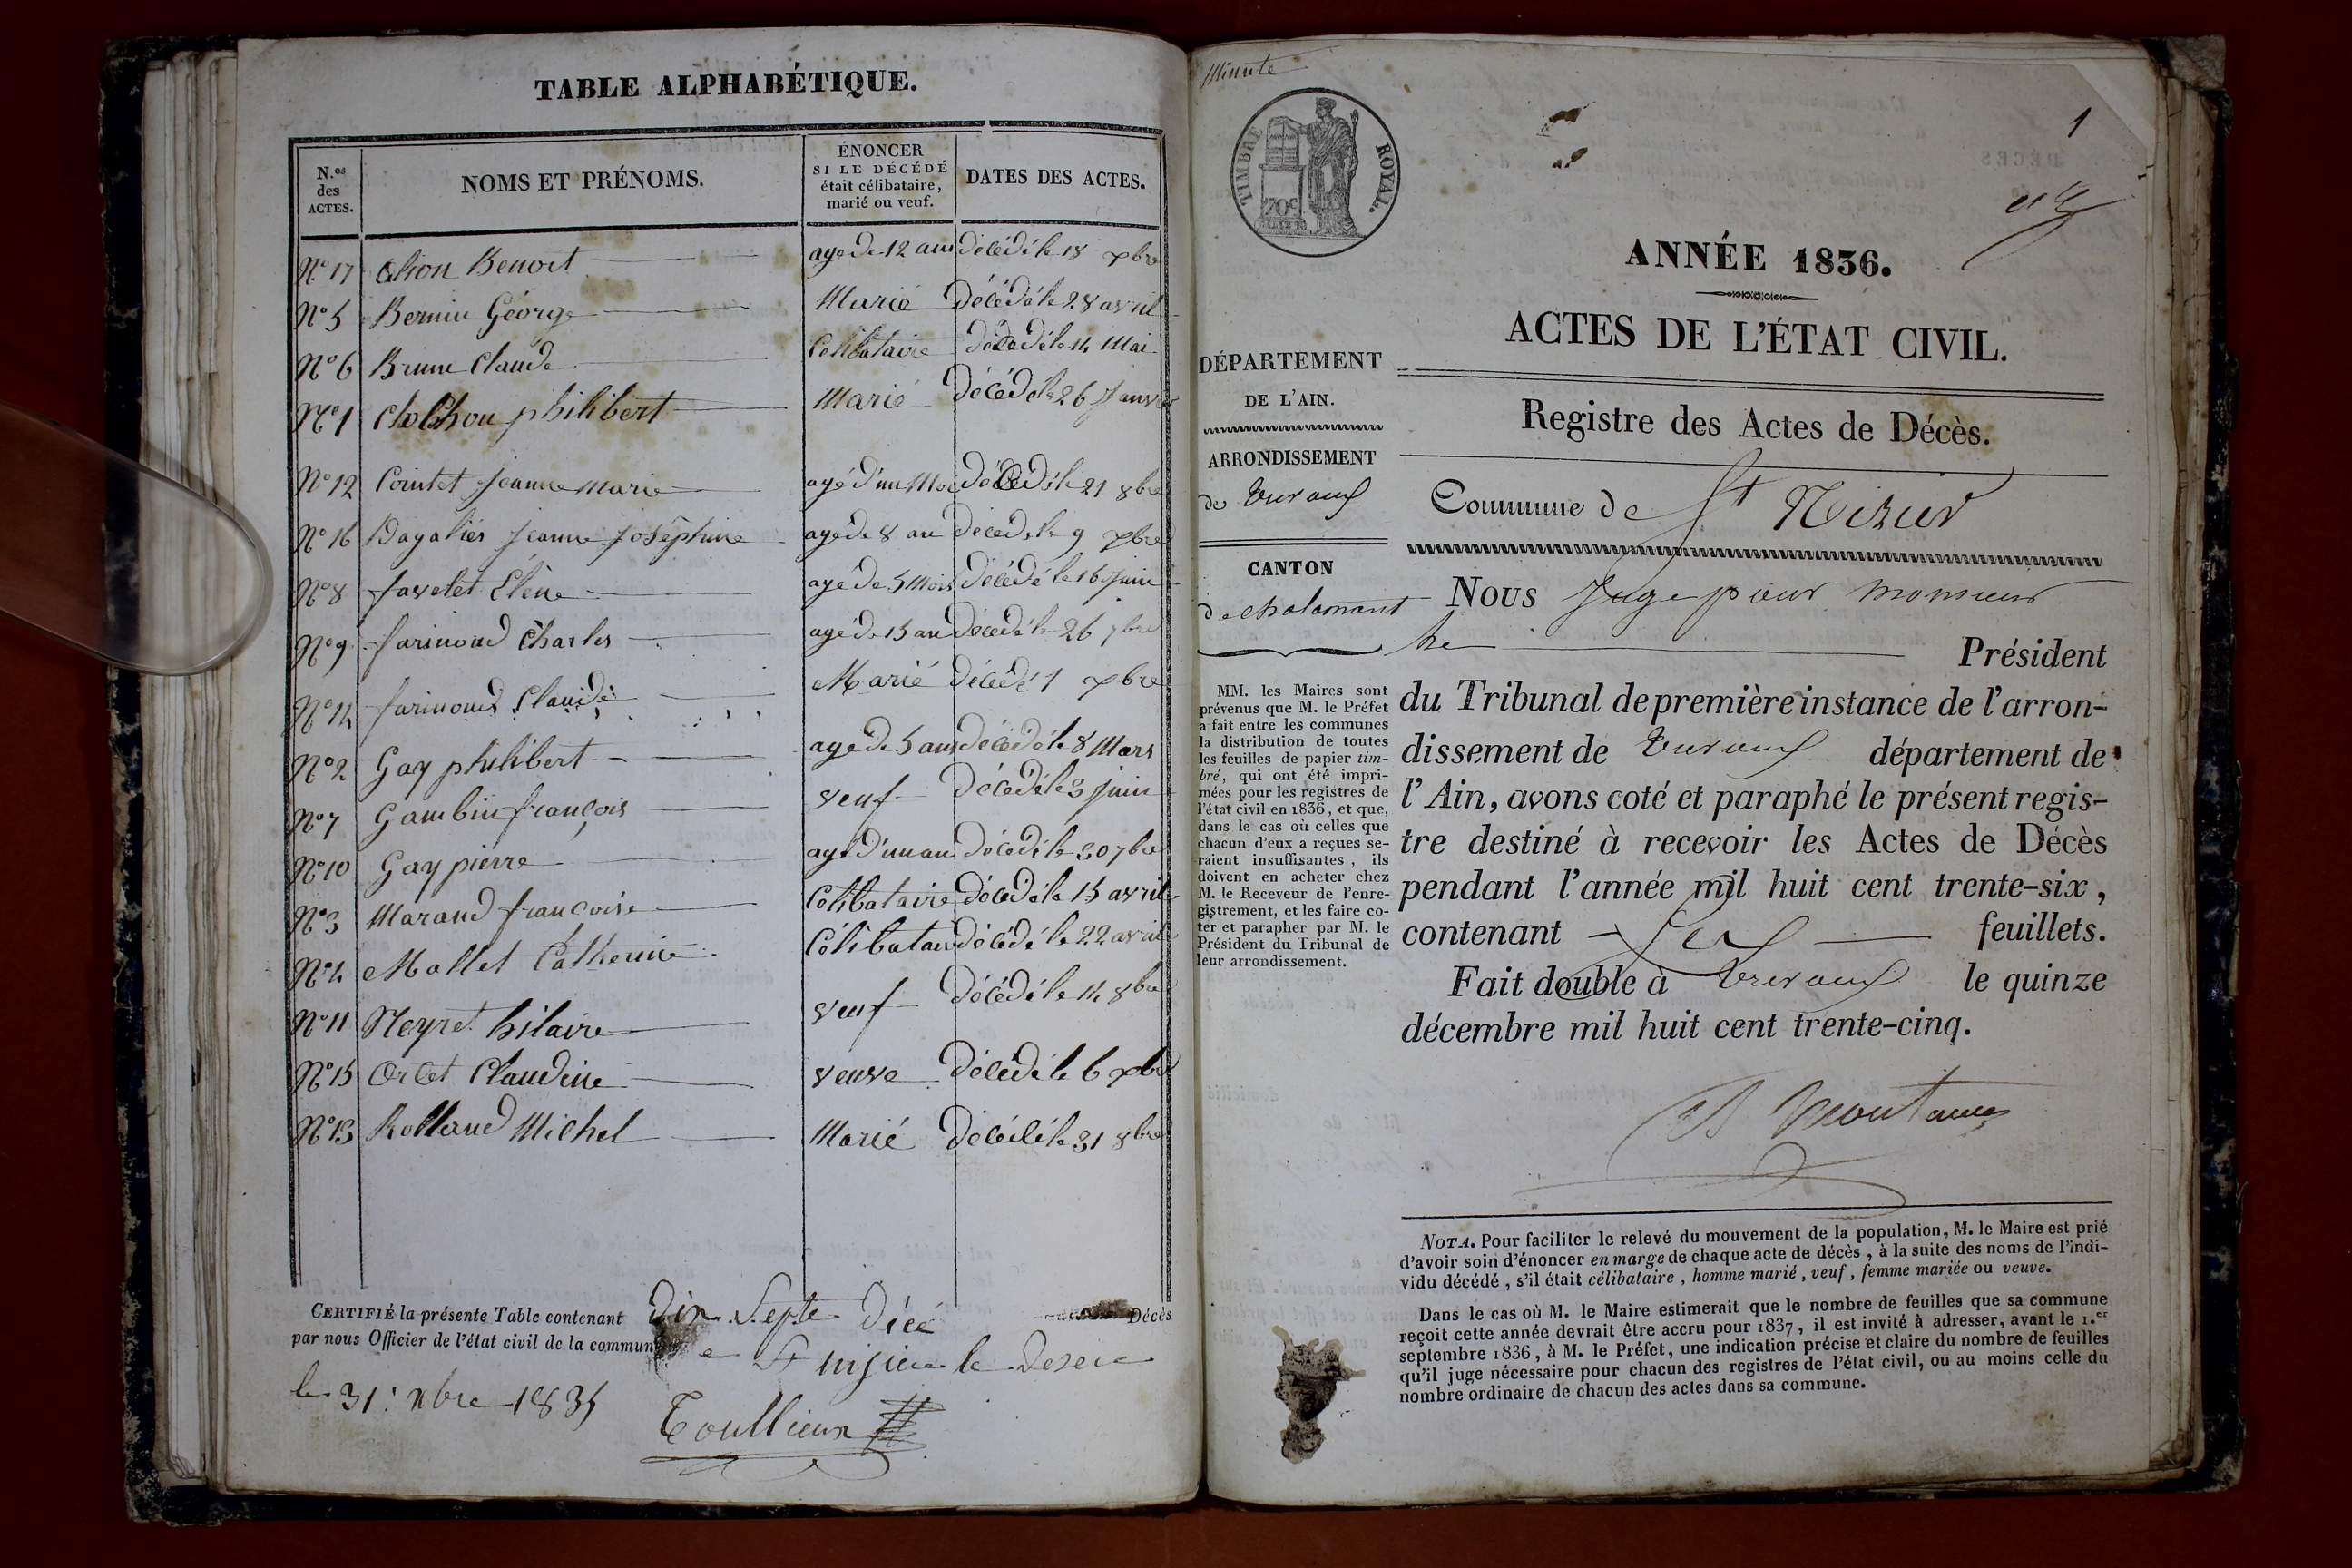 TABLE ALPHABÉTIQUE.
N.os des ACTES.
NOMS ET PRÉNOMS.
ÉNONCER SI LE DÉCÉDÉ était célibataire, marié ou veuf.
DATES DES ACTES.
N° 17 Benoit agé de 12 ans décédé le 18 xbre
N° 5 Bernin George Marié Décédé le 28 avril
N° 6 Brune Claude Célibataire Décédé le 14 Mai
N° 1 philibert Marié Décédé le 26 Janvier
N° 12 Cointet Jeanne marie agé d'un Moi Décédé le 21 8bre
N° 16 Dagalier Jeanne Joséphine agé de 8 an Décédé le 9 xbre
N° 8 favelet Elène agé de 5 Mois Décédé le 16 Juin
N° 9 farimond Charles agé de 15 an Décédé le 26 7bre
N° 14 farimond Claude Marié décédé 1 xbre
N° 2 Gay philibert agé de 5 ans décédé le 8 Mars
N° 7 Gambin françois veuf Décédé le 3 juin
N° 10 Gay pierre agé d'un an Décédé le 30 7bre
N° 3 Marand françoise Célibataire Décédé le 15 avril
N° 4 Mallet Catherine Célibatair Décédé le 22 avril
N° 11 Neyret hilaire veuf Décédé le 14 8bre
N° 15 Orcet Claudine veuve Décédé le 6 xbre
N° 13 Rolland Michel Marié Décédé le 31 8bre
CERTIFIÉ la présente Table contenant dix Septe Décé Décès
par nous Officier de l'état civil de la commune St nisier le Deser
le 31 xbre 1835
Toullieux
Minute
TIMBRE ROYAL.
70c
1
ANNÉE 1836.
ACTES DE L'ÉTAT CIVIL.
Registre des Actes de Décès.
Commune de St Nizier
DÉPARTEMENT
DE L'AIN.
ARRONDISSEMENT
de Trevoux
CANTON
de chalamont
MM. les Maires sont
prévenus que M. le Préfet
a fait entre les communes
la distribution de toutes
les feuilles de papier tim-
bré, qui ont été impri-
mées pour les registres de
l'état civil en 1836, et que,
dans le cas où celles que
chacun d'eux a reçues se-
raient insuffisantes, ils
doivent en acheter chez
M. le Receveur de l'enre-
gistrement, et les faire co-
ter et parapher par M. le
Président du Tribunal de
leur arrondissement.
Nous Juge pour monsieur
le Président
du Tribunal de première instance de l'arron-
dissement de Trevoux département de
l'Ain, avons coté et paraphé le présent regis-
tre destiné à recevoir les Actes de Décès
pendant l'année mil huit cent trente-six,
contenant feuillets.
Fait double à Trevoux le quinze
décembre mil huit cent trente-cinq.
NOTA. Pour faciliter le relevé du mouvement de la population, M. le Maire est prié
d'avoir soin d'énoncer en marge de chaque acte de décès, à la suite des noms de l'indi-
vidu décédé, s'il était célibataire, homme marié, veuf, femme mariée ou veuve.
Dans le cas où M. le Maire estimerait que le nombre de feuilles que sa commune
reçoit cette année devrait être accru pour 1837, il est invité à adresser, avant le 1.er
septembre 1836, à M. le Préfet, une indication précise et claire du nombre de feuilles
qu'il juge nécessaire pour chacun des registres de l'état civil, ou au moins celle du
nombre ordinaire de chacun des actes dans sa commune.